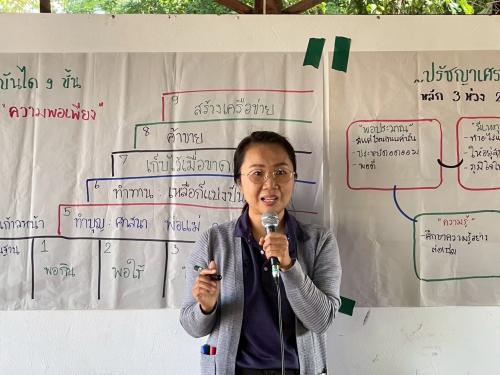 บันได 9 ขั้น
"ความพอเพียง"
9 สร้างเครือข่าย
8 ค้าขาย
7 เก็บไว้เมื่อขาด
6 ทำทาน : เหลือก็แบ่งปัน
5 ทำบุญ : ศาสนา พ่อแม่
ก้าวหน้า
1 2 3
พอกิน พอใช้
ปรัชญาเศร
หลัก 3 ห่วง 2
"พอประมาณ"
พอดี
"ความรู้"
- ศึกษาความรู้อย่าง
ต่อเนื่อง